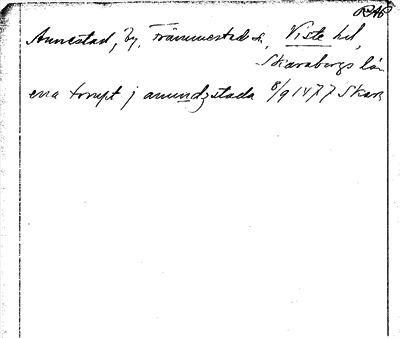 RAP
Annestad, by, Trämmestad s:n, Viste hd,
Skaraborgs län
ena tompt j amundzstada 8/9 1477 Skara